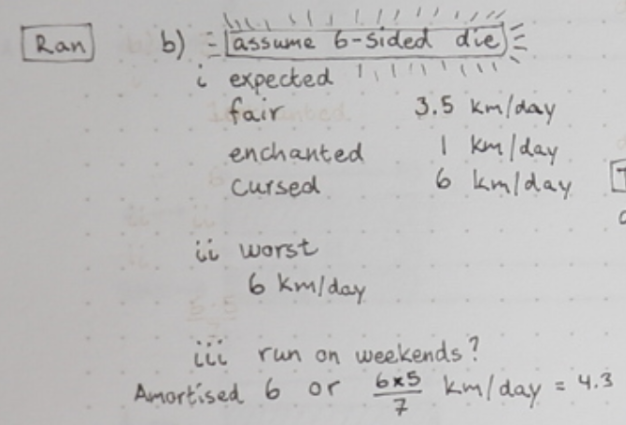 Ran
b) assume 6-sided die
i expected
fair 3.5 km/day
enchanted 1 km/day
cursed 6 km/day
ii worst
6 km/day
iii run on weekends?
Amortised 6 or 6×5/7 km/day = 4.3